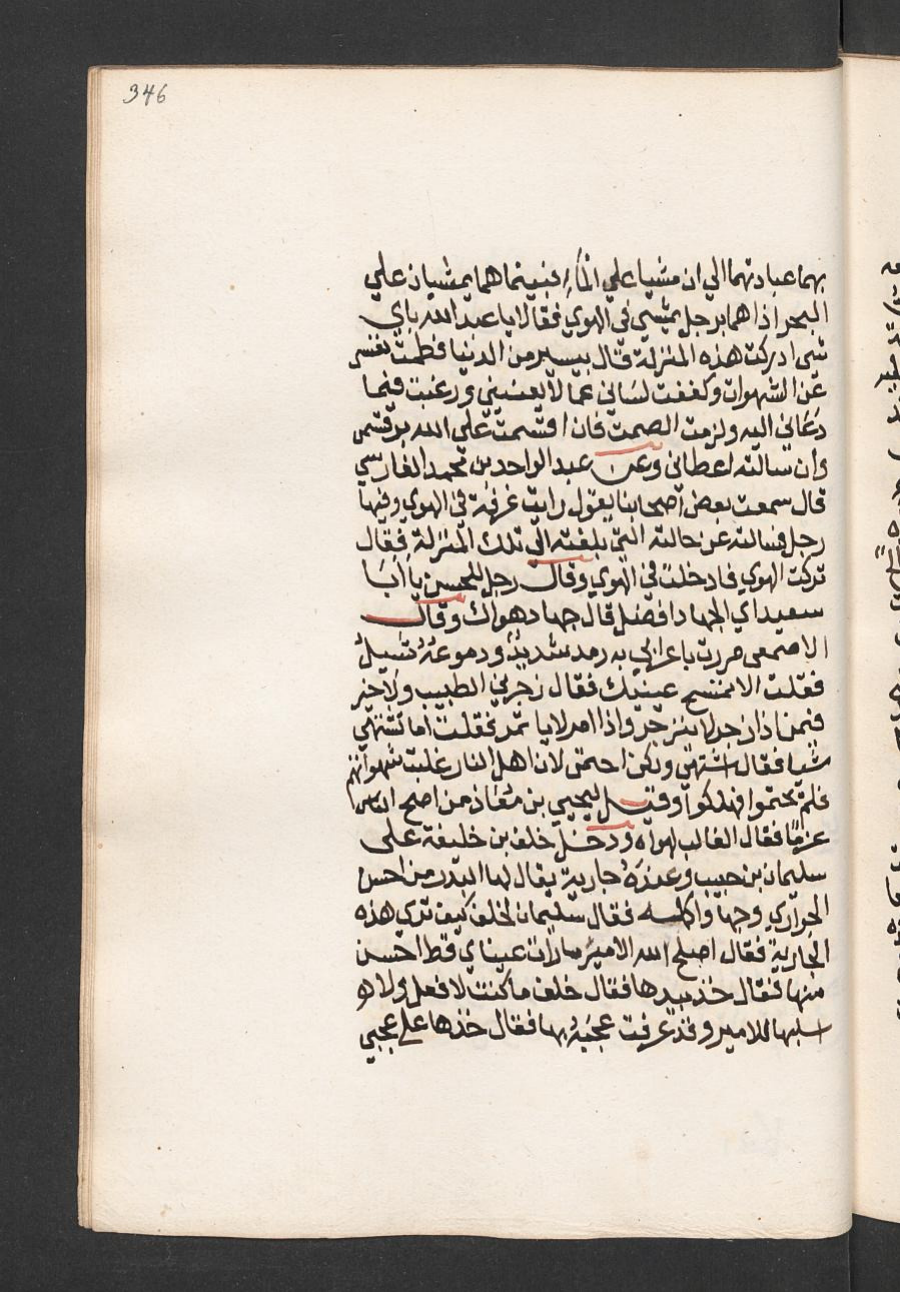 346
بهما عبادتهما الي ان مشيا علي الماء فبينما هما يمشيان علي
البحر اذا هما برجل يمشي في الهوي فقالا يا عبد الله باي
شي ادركت هذه المنزلة قال بيسير من الدنيا فطمت نفسي
عن الشهوات وكففت لساني عما لا يعنيني ورغبت فيما
دعاني اليه ولزمت الصمت فان اقسمت علي الله بر قسمي
وان سالته اعطاني وعن عبد الواحد بن محمد الفارسي
قال سمعت بعض اصحابنا يقول رايت غرفة في الهوي وفيها
رجل فسالته عن حالته التي بلغته الي تلك المنزلة فقال
تركت الهوي فادخلت في الهوي وقال رجل للحسن يا ابا
سعيد اي الجهاد افضل قال جهاد هواك وقال
الاصمعي مررت باعرابي به رمد شديد ودموعه تسيل
فقلت الا تمسح عينيك فقال زجرني الطبيب ولا خير
فيمن اذا زجر لا ينزجر واذا امر لا ياتمر فقلت اما تشتهي
شيا فقال اشتهي ولكن احتمي لان اهل النار غلبت شهواتهم
فلم يحتموا فهلكوا وقيل ليحيي بن معاذ من اصح الناس
عزما فقال الغالب لهواه ودخل خلف بن خليفة علي
سليمان بن حبيب وعنده جارية يقال لها البدر من احسن
الجواري وجها واكمله فقال سليمان لخلف كيف تري هذه
الجارية فقال اصلح الله الامير ما رات عيناي قط احسن
منها فقال خذ بيدها فقال خلف ما كنت لافعل ولا
اسلبها للامير وقد عرفت عجبه بها فقال خذها علي عجبي